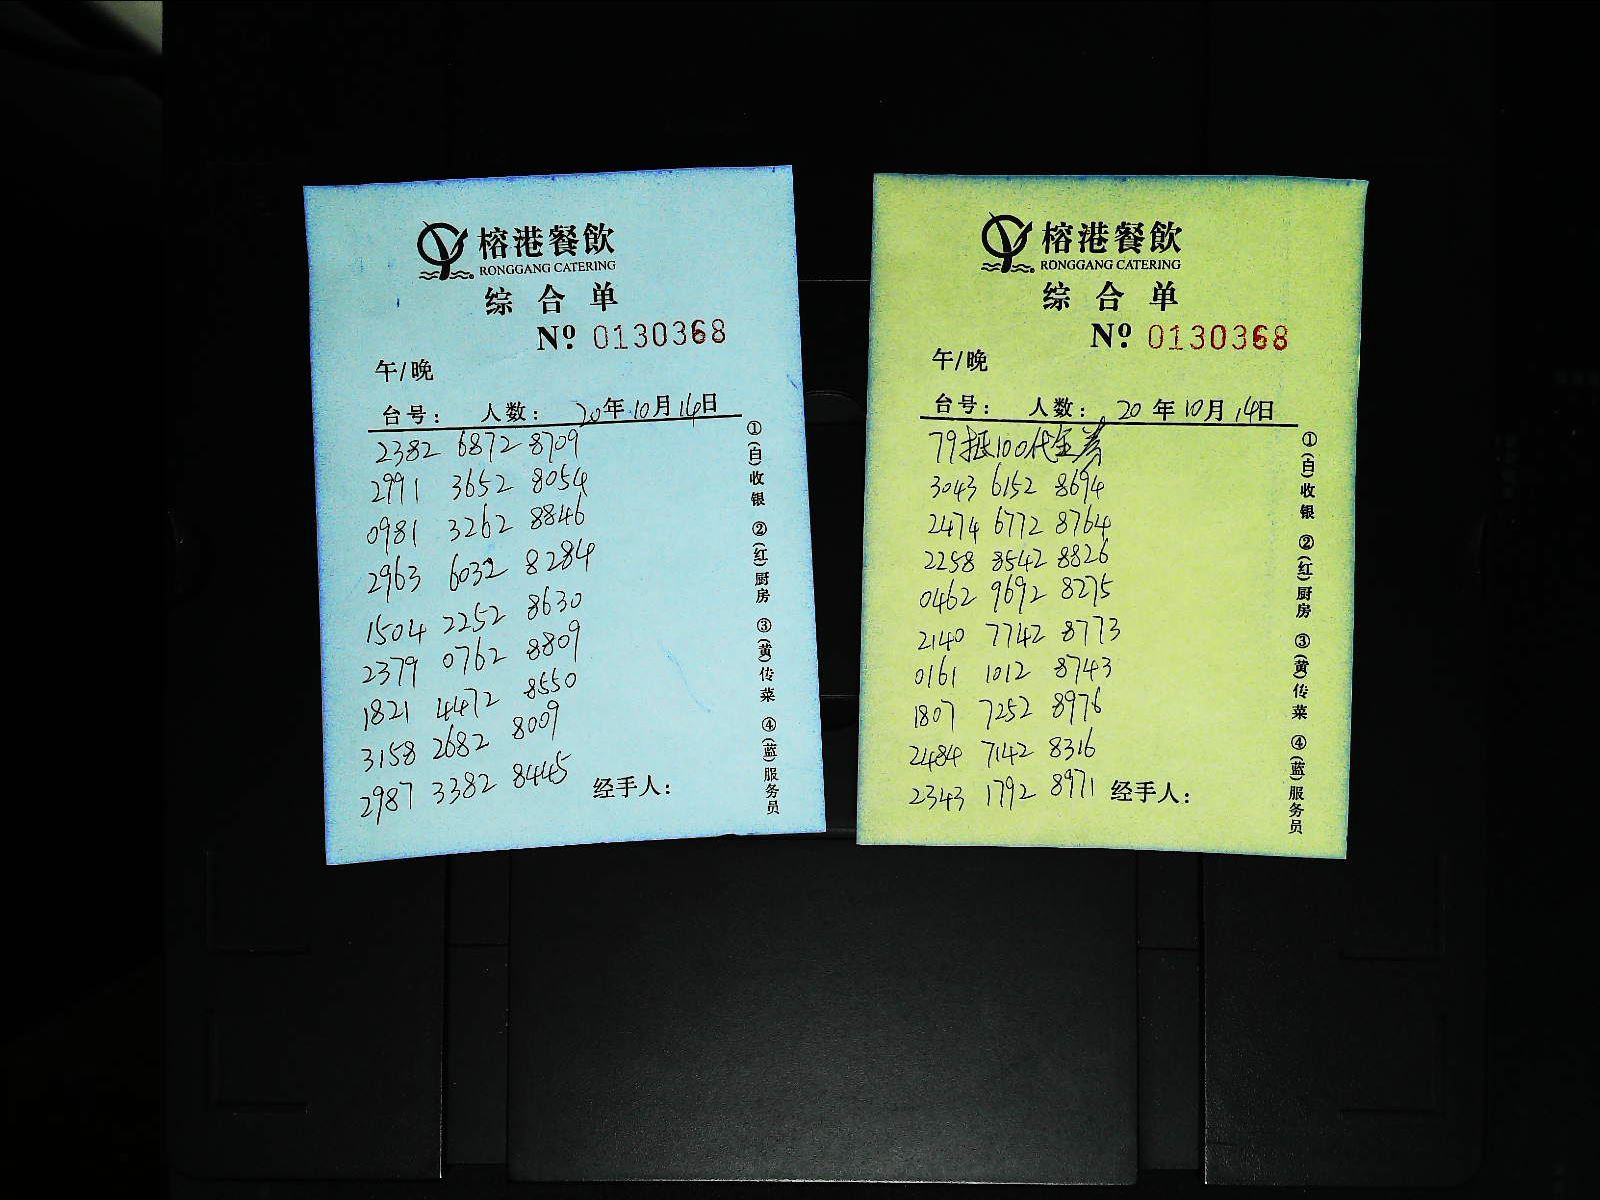 榕港餐飲
RONGGANG CATERING
综合单
Nº 0130368
午/晚
台号： 人数： 20年10月14日
2382 6872 8709
2991 3652 8054
0981 3262 8846
2963 6032 8284
1504 2252 8630
2379 0762 8809
1821 4472 8550
3158 2682 8009
2987 3382 8445
经手人：
①(白)收银 ②(红)厨房 ③(黄)传菜 ④(蓝)服务员
榕港餐飲
RONGGANG CATERING
综合单
Nº 0130368
午/晚
台号： 人数： 20年10月14日
79抵100代金券
3043 6152 8694
2474 6772 8764
2258 8542 8826
0462 9692 8275
2140 7742 8773
0161 1012 8743
1807 7252 8976
2484 7142 8316
2343 1792 8971
经手人：
①(白)收银 ②(红)厨房 ③(黄)传菜 ④(蓝)服务员